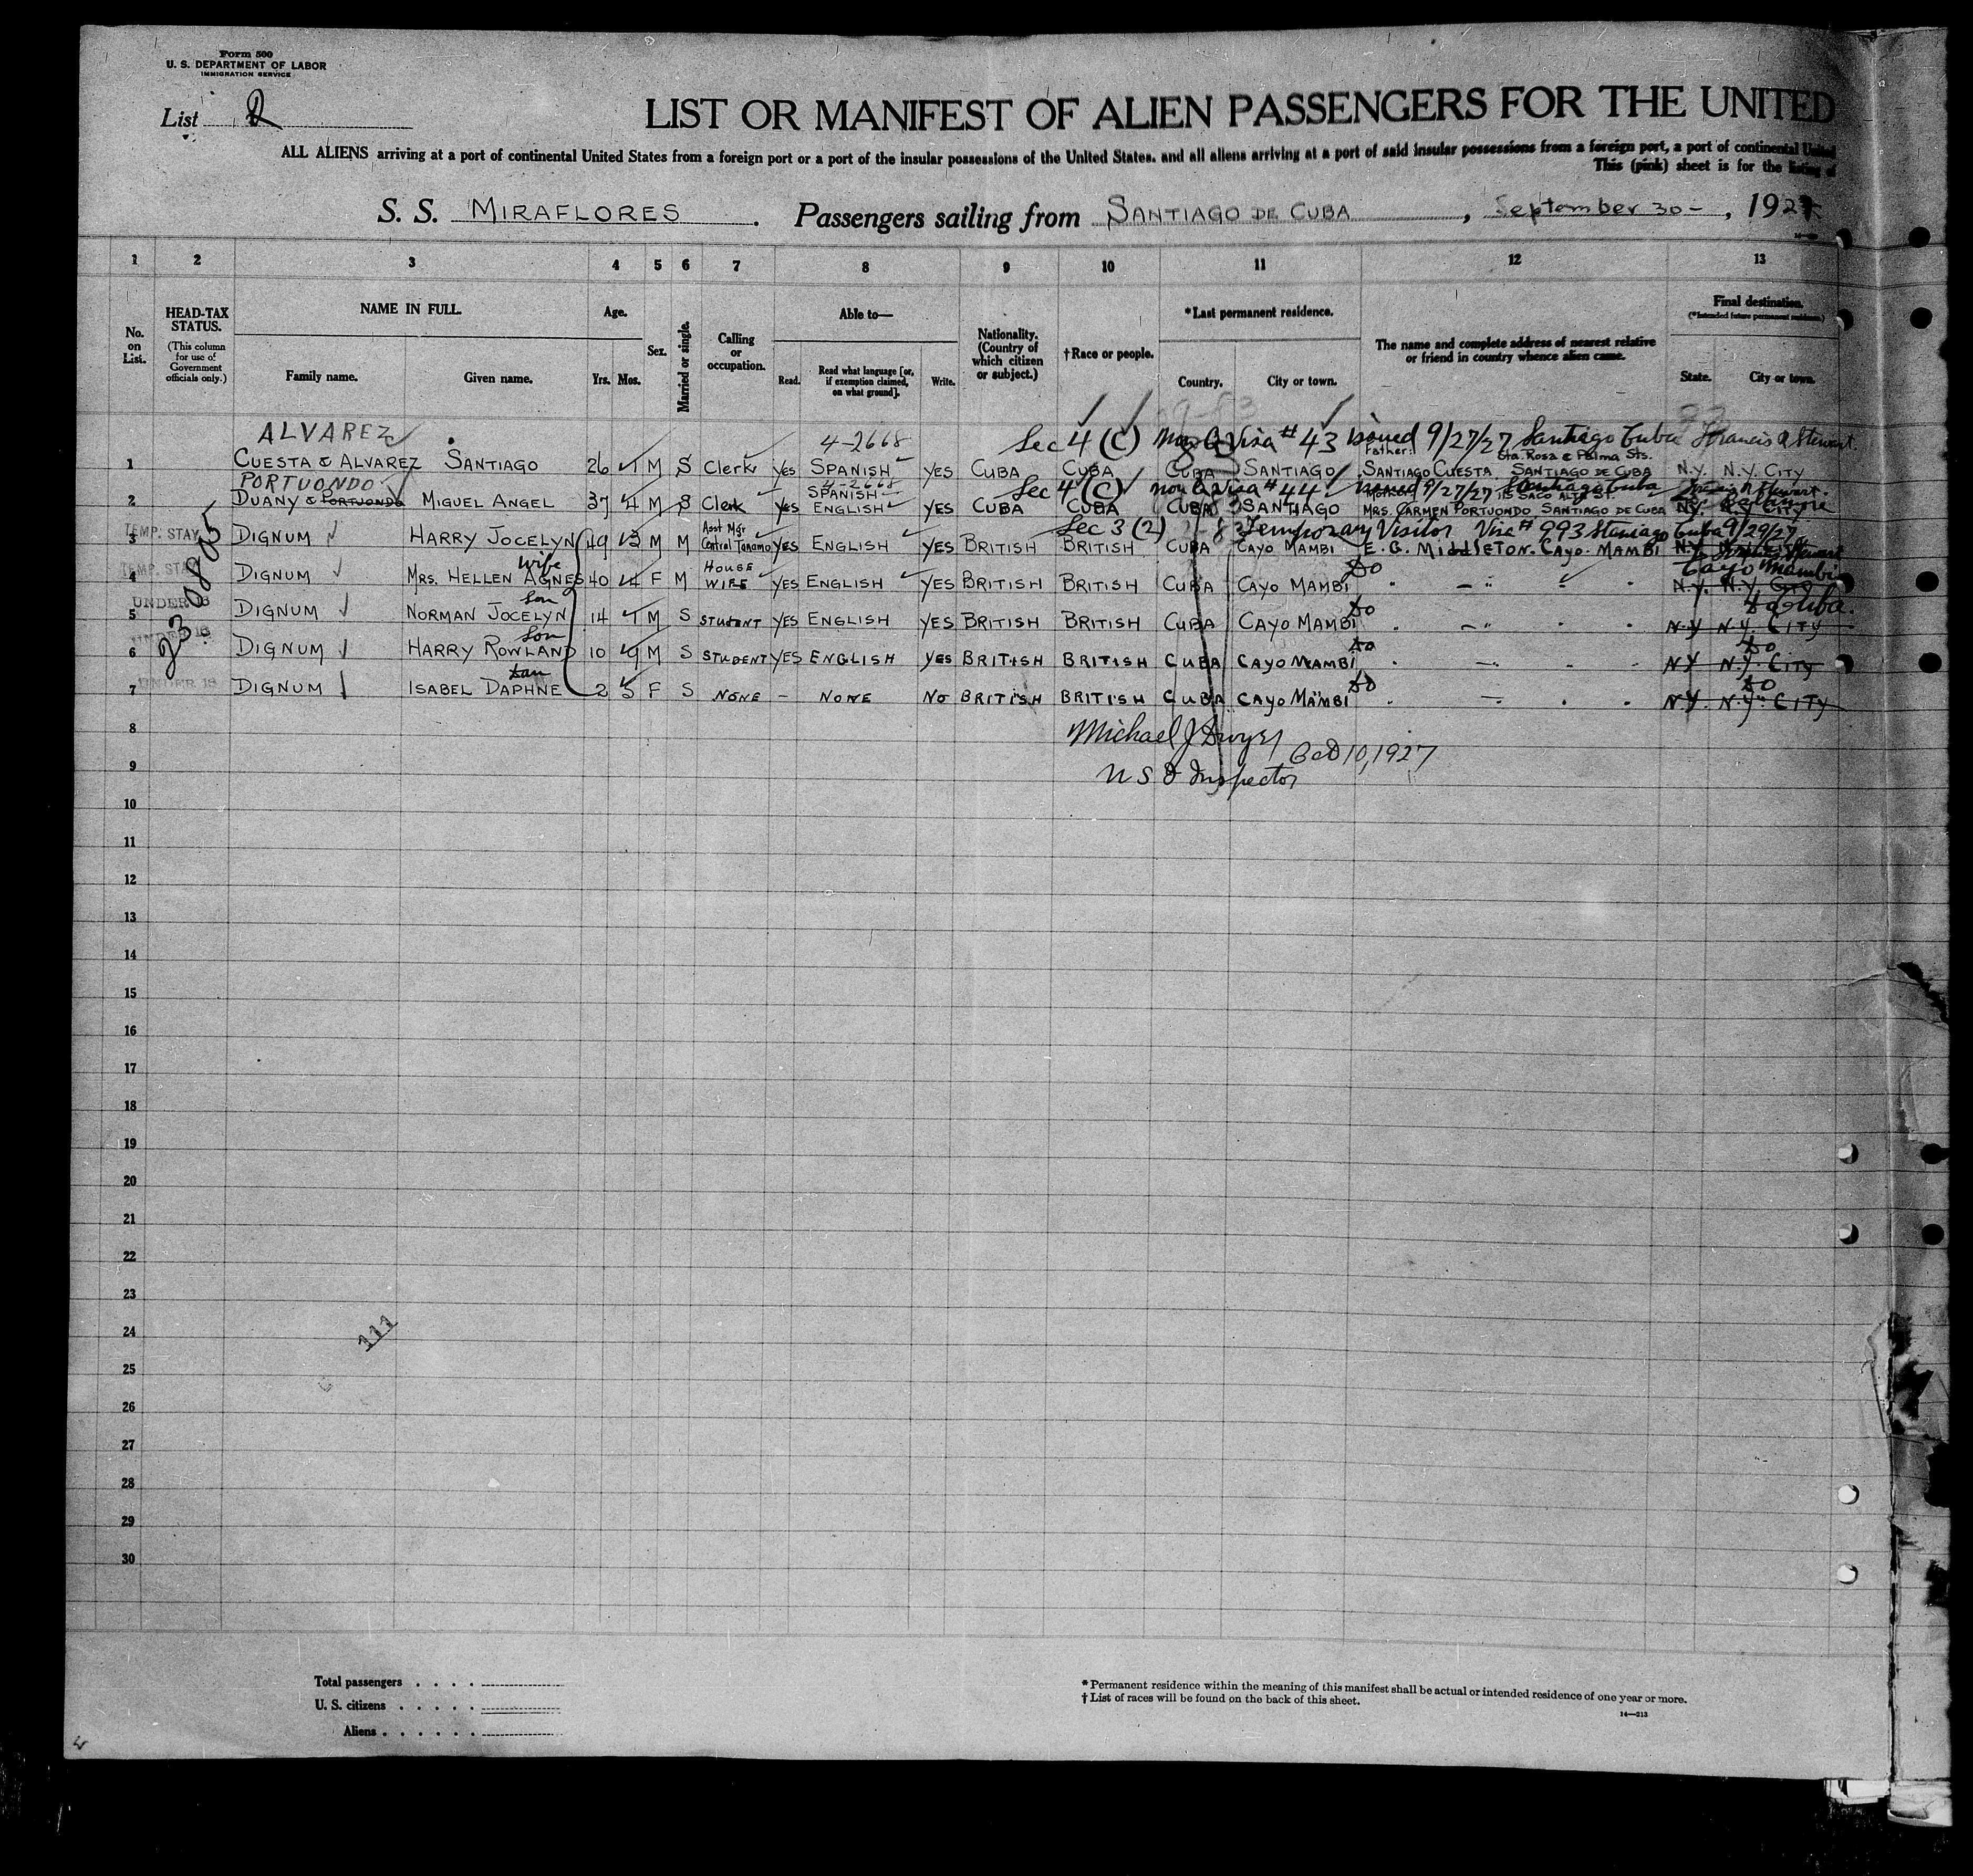 Form 500
U. S. DEPARTMENT OF LABOR
IMMIGRATION SERVICE
List
LIST OR MANIFEST OF ALIEN PASSENGERS FOR THE UNITED
ALL ALIENS arriving at a port of continental United States from a foreign port or a port of the insular possessions of the United States, and all aliens arriving at a port of said insular possessions from a foreign port, a port of continental United
This (pink) sheet is for the listing of
S. S. MIRAFLORES. Passengers sailing from SANTIAGO DE CUBA, September 30-, 1927
1 2 3 4 5 6 7 8 9 10 11 12 13
No. on List.
HEAD-TAX STATUS.
(This column for use of Government officials only.)
NAME IN FULL.
Family name. Given name.
Age.
Yrs. Mos.
Sex.
Married or single.
Calling or occupation.
Able to—
Read. Read what language [or, if exemption claimed, on what ground]. Write.
Nationality. (Country of which citizen or subject.)
†Race or people.
*Last permanent residence.
Country. City or town.
The name and complete address of nearest relative or friend in country whence alien came.
Final destination.
(*Intended future permanent residence.)
State. City or town.
ALVAREZ 4-2668 Sec 4 (C) Non Q Visa #43 issued 9/27/27 Santiago Cuba Francis R Stewart.
Father: Sta. Rosa & Palma Sts.
1 CUESTA & ALVAREZ SANTIAGO 26 1 M S Clerk Yes SPANISH YES CUBA CUBA CUBA SANTIAGO SANTIAGO CUESTA SANTIAGO DE CUBA N.Y. N.Y. CITY
PORTUONDO 4-2668 Sec 4 (C) Non Q Visa #44 issued 9/27/27 Santiago Cuba
2 DUANY & PORTUONDO MIGUEL ANGEL 37 4 M S Clerk Yes SPANISH ENGLISH YES CUBA CUBA CUBA SANTIAGO MRS. CARMEN PORTUONDO SANTIAGO DE CUBA N.Y. N.Y. CITY
TEMP. STAY Sec 3 (2) Temporary Visitor Visa #993 Santiago Cuba 9/29/27
3 DIGNUM HARRY JOCELYN 49 3 M M Asst Mgr Central Tanamo YES ENGLISH YES BRITISH BRITISH CUBA CAYO MAMBI E. G. MIDDLETON. CAYO. MAMBI N.Y.
TEMP. STAY wife do Cayo Mambi
4 DIGNUM MRS. HELLEN AGNES 40 4 F M HOUSE WIFE YES ENGLISH YES BRITISH BRITISH CUBA CAYO MAMBI N.Y. N.Y. CITY
UNDER 16 Son do Cuba.
5 DIGNUM NORMAN JOCELYN 14 1 M S STUDENT YES ENGLISH YES BRITISH BRITISH CUBA CAYO MAMBI N.Y N.Y. CITY
UNDER 16 Son do do
6 DIGNUM HARRY ROWLAND 10 9 M S STUDENT YES ENGLISH YES BRITISH BRITISH CUBA CAYO MAMBI N.Y N.Y. CITY
UNDER 16 dau do do
7 DIGNUM ISABEL DAPHNE 2 5 F S NONE - NONE NO BRITISH BRITISH CUBA CAYO MAMBI N.Y. N.Y. CITY
8 Michael J Dwyer Oct 10, 1927
9 U S I Inspector
10
11
12
13
14
15
16
17
18
19
20
21
22
23
24
25
26
27
28
29
30
111
Total passengers
U. S. citizens
Aliens
* Permanent residence within the meaning of this manifest shall be actual or intended residence of one year or more.
† List of races will be found on the back of this sheet.
14—213